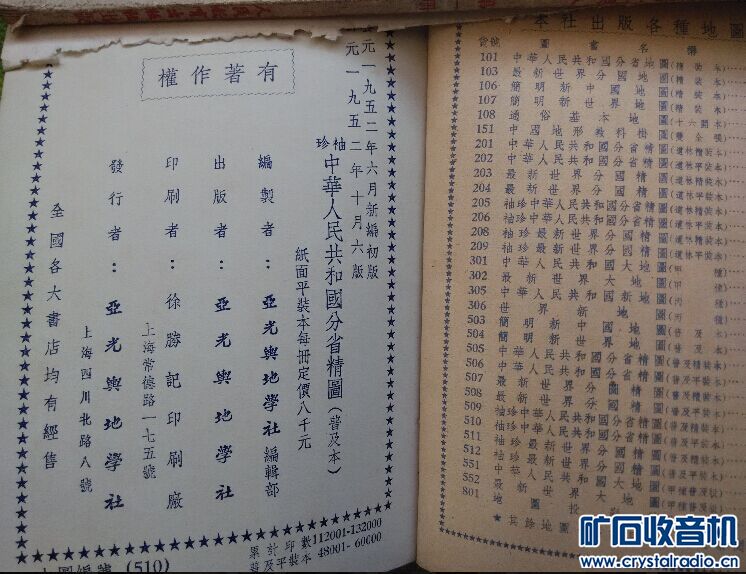 有著作權
元一九五二年六月新編初版
元一九五二年十月六版
袖珍 中華人民共和國分省精圖(普及本)
紙面平裝本每冊定價八千元
編製者：亞光輿地學社編輯部
出版者：亞光輿地學社
印刷者：徐勝記印刷廠
上海常德路一七五號
發行者：亞光輿地學社
上海四川北路八號
全國各大書店均有經售
(510)
累計印數112001-132000
普及平裝本 48001-60000
本社出版各種地圖
書號 圖書名稱
101 中華人民共和國分省地圖(精裝本)
103 最新世界分國地圖(精裝本)
106 簡明新中國地圖(精裝本)
107 簡明新世界地圖(精裝本)
108 通俗基本地圖(十六開本)
151 中國地形教科掛圖(雙全張)
201 中華人民共和國分省精圖(道林精裝本)
202 中華人民共和國分省精圖(道林平裝本)
203 最新世界分國精圖(道林精裝本)
204 最新世界分國精圖(道林平裝本)
205 袖珍中華人民共和國分省精圖(道林精裝本)
206 袖珍中華人民共和國分省精圖(道林平裝本)
208 袖珍最新世界分國精圖(道林精裝本)
209 袖珍最新世界分國精圖(道林平裝本)
301 中華人民共和國大地圖(甲種)
302 最新世界大地圖(甲種)
305 中華人民共和國新地圖(丙種)
306 世界新地圖(丙種)
503 簡明新中國地圖(普及本)
504 簡明新世界地圖(普及本)
505 中華人民共和國分省精圖(普及精裝本)
506 中華人民共和國分省精圖(普及平裝本)
507 最新世界分國精圖(普及精裝本)
508 最新世界分國精圖(普及平裝本)
509 袖珍中華人民共和國分省精圖(普及精裝本)
510 袖珍中華人民共和國分省精圖(普及平裝本)
511 袖珍最新世界分國精圖(普及精裝本)
512 袖珍最新世界分國精圖(普及平裝本)
551 中華人民共和國大地圖(甲種普及版)
552 最新世界大地圖(甲種普及版)
801 地圖投
★其餘地圖
矿石收音机
www.crystalradio.cn